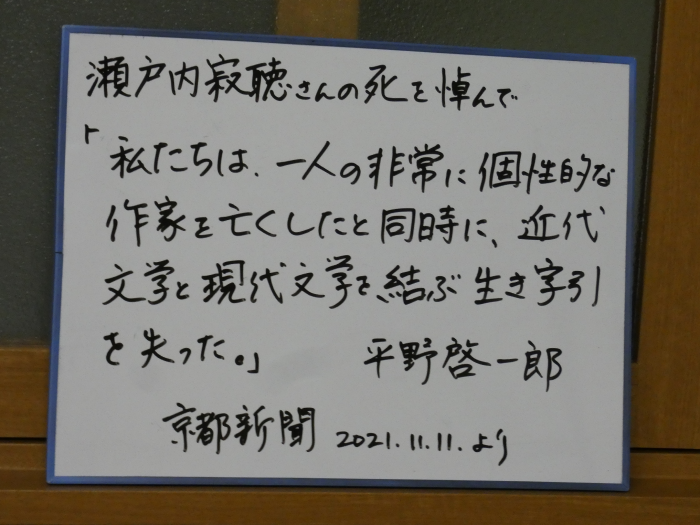 瀬戸内寂聴さんの死を悼んで
「私たちは、一人の非常に個性的な
作家を亡くしたと同時に、近代
文学と現代文学を結ぶ生き字引
を失った。」 平野啓一郎
京都新聞 2021.11.11.より